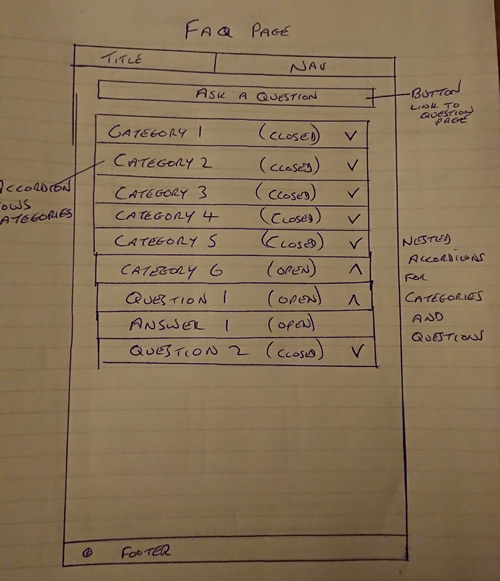 FAQ PAGE
TITLE
NAV
ASK A QUESTION
BUTTON
LINK TO
QUESTION
PAGE
CATEGORY 1 (CLOSED) V
CATEGORY 2 (CLOSED) V
CATEGORY 3 (CLOSED) V
CATEGORY 4 (CLOSED) V
CATEGORY 5 (CLOSED) V
CATEGORY 6 (OPEN) Λ
QUESTION 1 (OPEN) Λ
ANSWER 1 (OPEN)
QUESTION 2 (CLOSED) V
ACCORDION
OWS
ATEGORIES
NESTED
ACCORDIONS
FOR
CATEGORIES
AND
QUESTIONS
© FOOTER